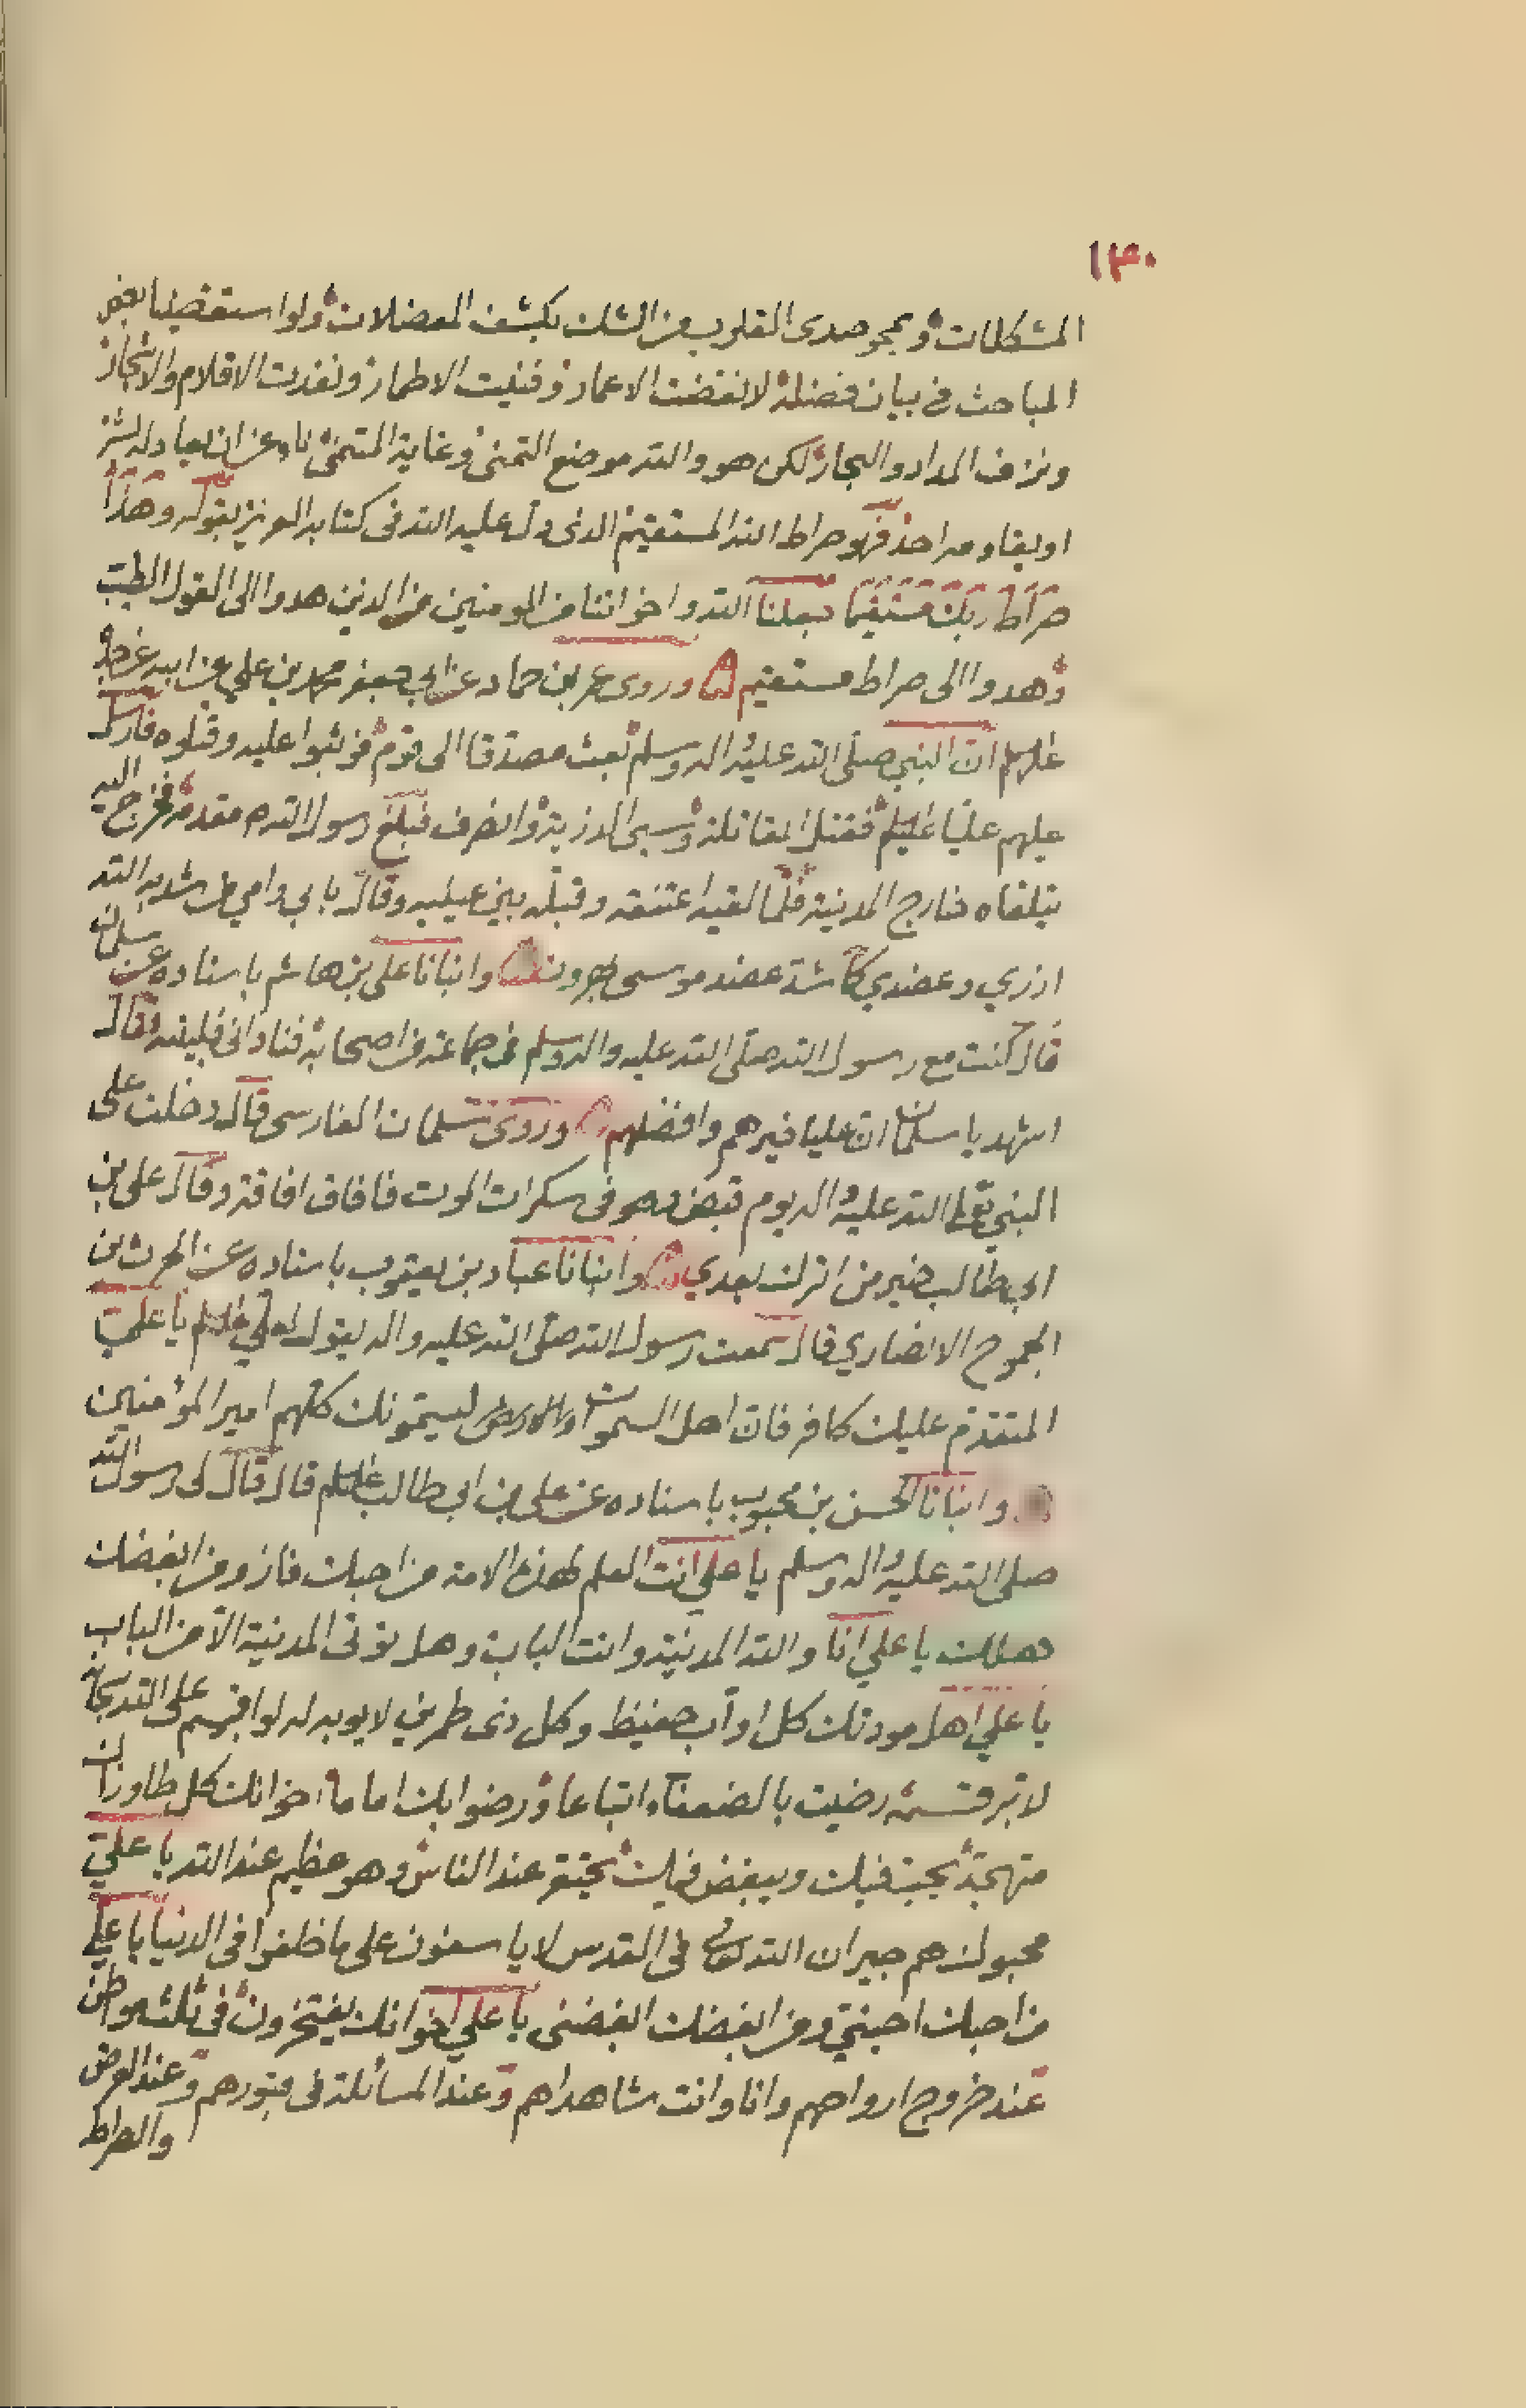 ١٣٠
المشكلات ويمحو صدى القلوب من الشك بكشف المعضلات ولو استقضينا بعض
المباحث في بيان فضله لانقضت الاعمار وفنيت الاطمار ونفدت الاقلام والاشجار
ونزف المداد والبحار لكن هو والله موضع التمني وغاية المتمني ناء عن ان يعادله بشر
او يقاومه احد فهو صراط الله المستقيم الذي دل عليه الله في كتابه العزيز بقوله وهذا
صراط ربك مستقيما جعلنا الله واخواننا من المومنين من الذين هدوا الى القول الطيب
وهدوا الى صراط مستقيم وروى عمر بن حماد عن ابي جعفر محمد بن علي عن ابيه عن جده
عليهم ان النبي صلى الله عليه واله وسلم بعث مصدقا الى قوم فوثبوا عليه وقتلوه فارسل
عليهم عليا عليه السلم فقتل المقاتلة وسبى الذرية وانصرف فبلغ رسول الله مقدمه فخرج اليه
يتلقاه خارج المدينة فلما لقيه اعتنقه وقبله بين عينيه وقال بابي وامي من شد به الله
ازري وعضدي كما شد عضد موسى بهرون وانبانا علي بن هاشم باسناده عن سلمان
قال كنت مع رسول الله صلى الله عليه واله وسلم في جماعة من اصحابه فناداني فلبيته فقال
اشهد يا سلمان ان عليا خيرهم وافضلهم وروى سلمان الفارسي قال دخلت على
النبي صلى الله عليه واله يوم قبض وهو في سكرات الموت فافاق افاقة وقال علي بن
ابي طالب خير من اترك بعدي وانبانا عباد بن يعقوب باسناده عن الحرث بن
الجموح الانصاري قال سمعت رسول الله صلى الله عليه واله يقول لعلي عليه السلم يا علي
المتقدم عليك كافر فان اهل السموات والارض ليسمونك كلهم امير المؤمنين
وانبانا الحسن بن محبوب باسناده عن علي بن ابي طالب عليه السلم قال قال لي رسول الله
صلى الله عليه واله وسلم يا علي انت العلم لهذه الامة من احبك فاز ومن ابغضك
هلك يا علي انا والله المدينة وانت الباب وهل يؤتى المدينة الا من الباب
يا علي اهل مودتك كل اواب حفيظ وكل ذي طمرين لا يوبه له لو اقسم على الله
لابر قسمه رضيت بالضعفاء اتباعا ورضوا بك اماما اخوانك كل طاو
متهجد يحب فيك ويبغض فيك محتقر عند الناس وهو عظيم عند الله يا علي
محبوك هم جيران الله في القدس لا ياسفون على ما خلفوا في الدنيا يا علي
من احبك احبني ومن ابغضك ابغضني يا علي اخوانك يفتخرون في ثلثة مواطن
عند خروج ارواحهم وانا وانت شاهداهم وعند المسائلة في قبورهم وعند العرض
والصراط